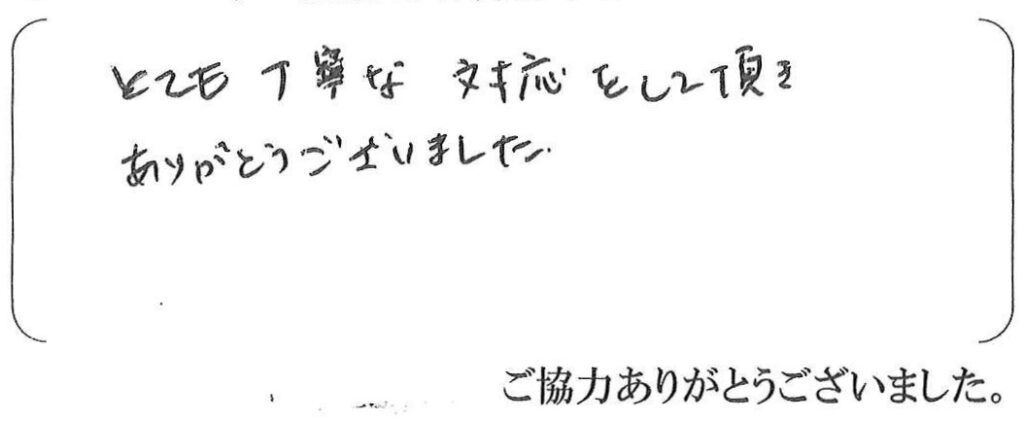 とても丁寧な対応をして頂き
ありがとうございました。
ご協力ありがとうございました。